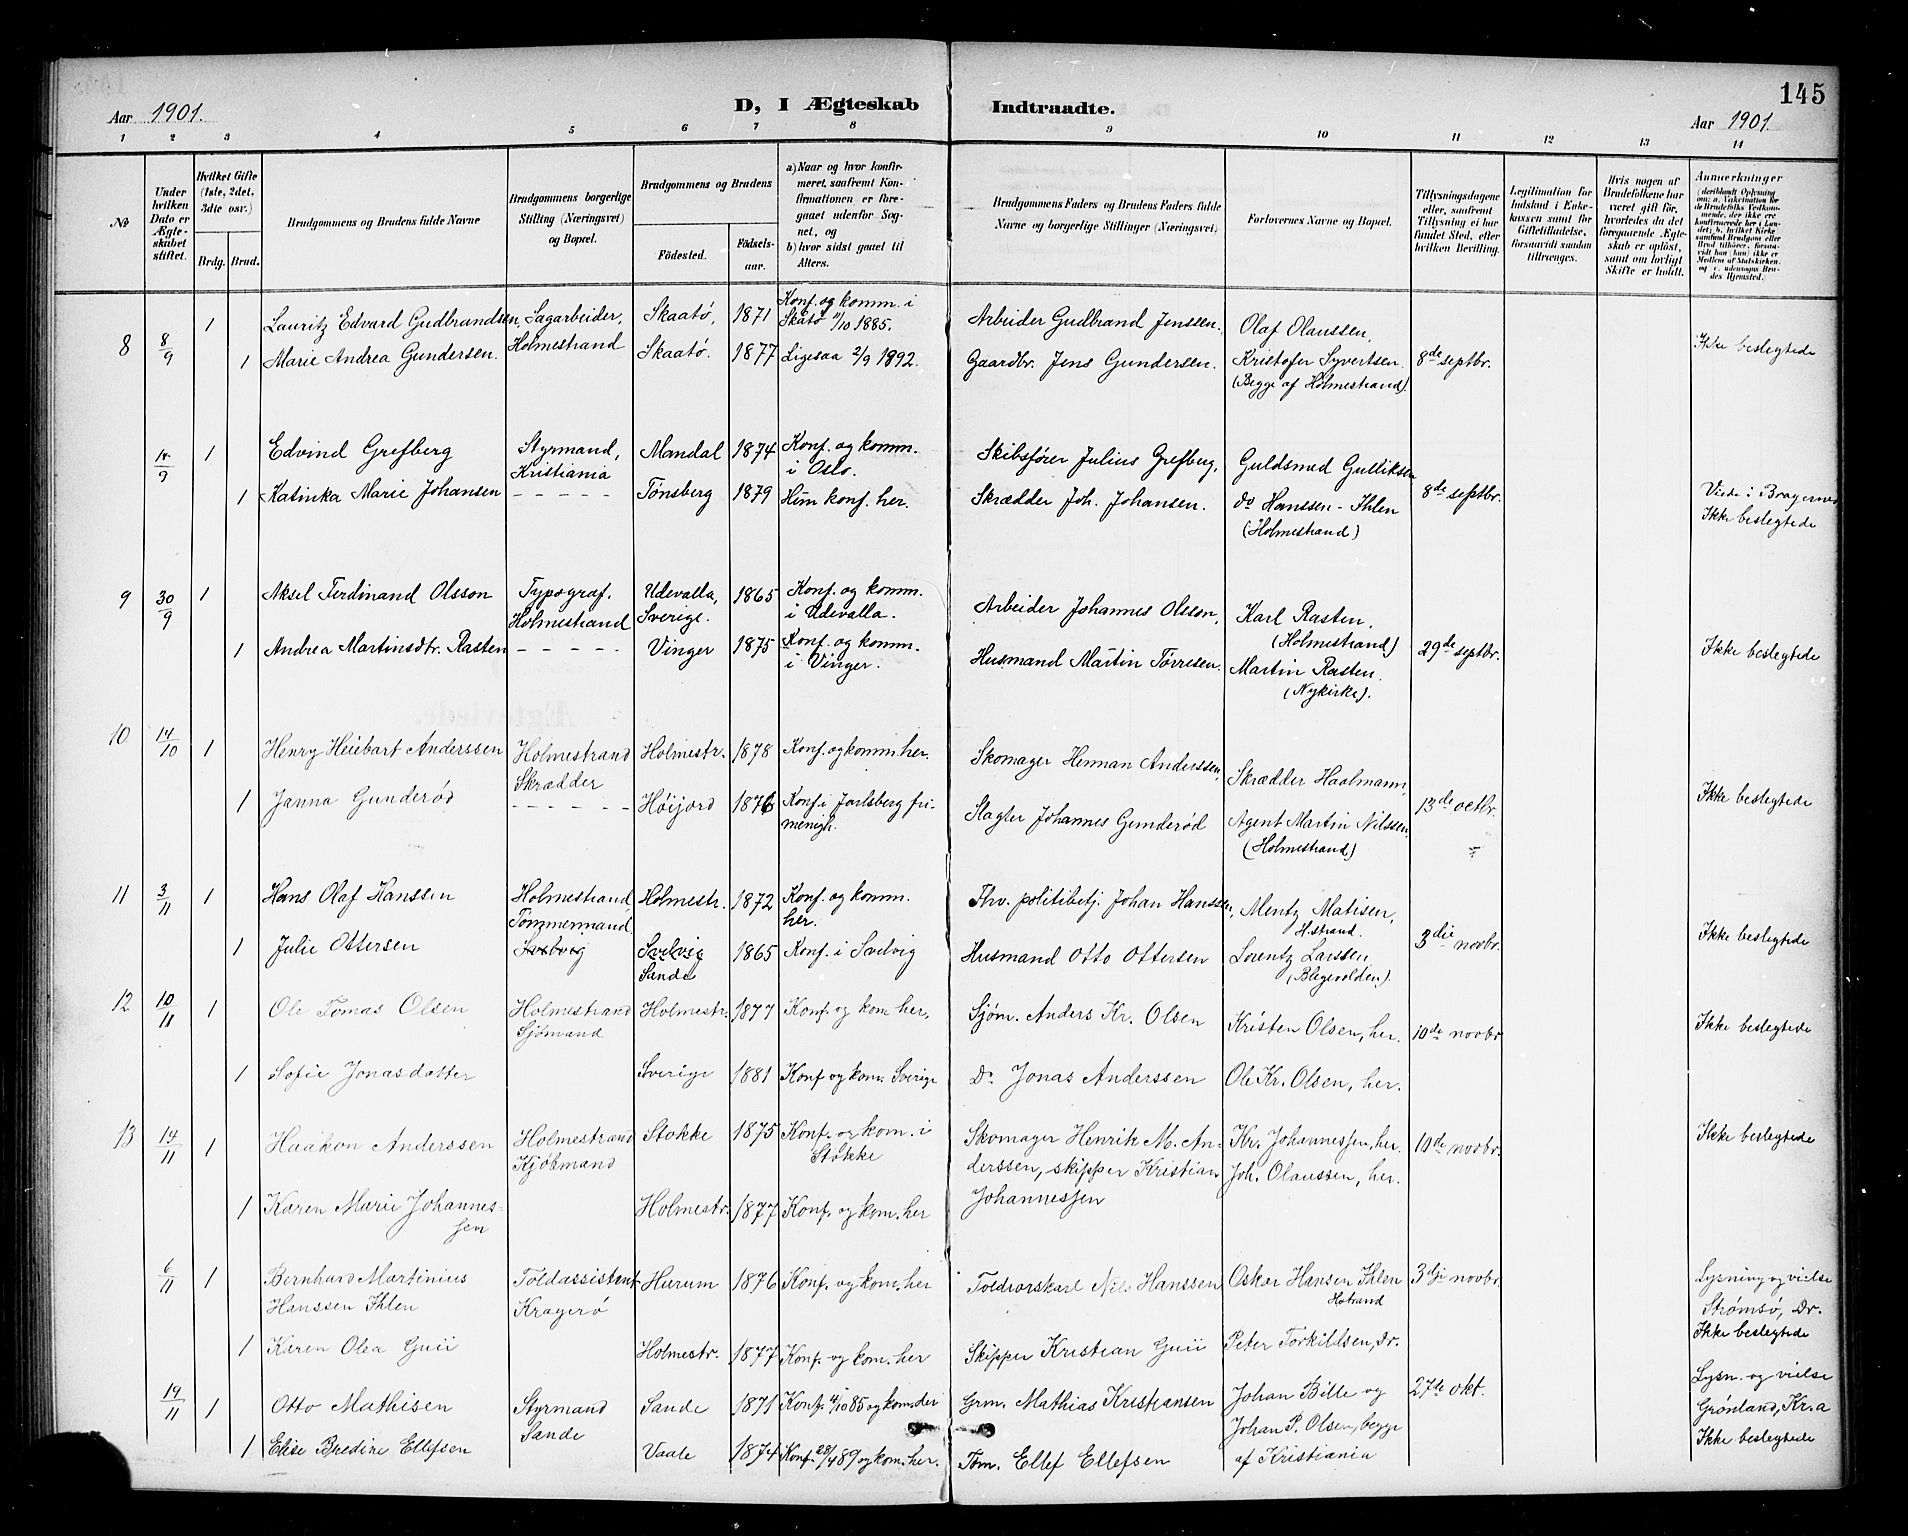 145
Aar 1901.
D, I Ægteskab Indtraadte.
Aar 1901.
1 2 3 4 5 6 7 8 9 10 11 12 13 14
№
Under hvilken Dato er Ægteskabet stiftet.
Hvilket Gifte (1ste, 2det, 3die osv.)
Brdg. Brud.
Brudgommens og Brudens fulde Navne
Brudgommens borgerlige Stilling (Næringsvei) og Bopæl.
Brudgommens og Brudens
Fødested.
Fødselsaar.
a) Naar og hvor konfirmeret, saafremt Konfirmationen er foregaaet udenfor Sognet, og
b) hvor sidst gaaet til Alters.
Brudgommens Faders og Brudens Faders fulde Navne og borgerlige Stillinger (Næringsvei).
Forlovernes Navne og Bopæl.
Tillysningsdagene eller, saafremt Tillysning ei har fundet Sted, efter hvilken Bevilling.
Legitimation for Indskud i Enkekassen samt for Giftetilladelse, forsaavidt saadan tiltrænges.
Hvis nogen af Brudefolkene har været gift før, hvorledes da det foregaaende Ægteskab er opløst, samt om lovligt Skifte er holdt.
Anmærkninger
8 8/9 1 Lauritz Edvard Gudbrandsen, Sagarbeider, Holmestrand Skaatø, 1871 Konf. og komm. i Skåtø 11/10 1885. Arbeider Gudbrand Jenssen. Olaf Olaussen,
1 Marie Andrea Gundersen. Skaatø. 1877 Ligesaa 2/9 1892. Gaardbr. Jens Gundersen. Kristofer Syvertsen. (Begge af Holmestrand). 8de septbr. Ikke beslegtede
/9 1 Edvind Grefberg Styrmand, Kristiania Mandal 1874 Konf. og komm. i Oslo. Skibsfører Julius Grefberg, Guldsmed Gulliksen
1 Katinka Marie Johansen - - - - - Tønsberg 1879 Hun konf. her. Skrædder Joh. Johansen. do Hanssen-Ihlen (Holmestrand) 8de septbr. Viede i Bragernes Ikke beslegtede
9 30/9 1 Aksel Ferdinand Olsson Typograf. Holmestrand Udevalla, Sverige. 1865 Konf. og komm. i Udevalla. Arbeider Johannes Olsson, Karl Rasten. (Holmestrand)
1 Andrea Martinsdtr. Rasten - - - - - Vinger 1875 Konf. og komm. i Vinger. Husmand Martin Torresen. Martin Rasten. (Nykirke). 29de septbr. Ikke beslegtede
10 14/10 1 Henry Heiebart Anderssen Holmestrand Skrædder Holmestr. 1878 Konf. og komm. her. Skomager Herman Anderssen, Skrædder Haalmann,
1 Janna Gunderød - - - - - Höijord 1876 Konf. i Jarlsberg frimenigh. Slagter Johannes Gunderød Agent Martin Nilssen. (Holmestrand) 13de octbr. Ikke beslegtede
11 3/11 1 Hans Olaf Hanssen Holmestrand Tømmermand. Holmestr. 1872 Konf. og komm. her. Fhv. politibetj. Johan Hanssen, Mentz Matisen, H.strand.
1 Julie Ottersen Svelvig Svelvig Sande 1865 Konf. i Svelvig Husmand Otto Ottersen Lorentz Larssen (Blegevolden). 3die novbr. Ikke beslegtede
12 10/11 1 Ole Tomas Olsen Holmestrand Sjömand Holmestr. 1877 Konf. og kom. her, Sjøm. Anders Kr. Olsen Kristen Olsen, her. 10de novbr Ikke beslegtede
1 Sofie Jonasdatter Sverige 1881 Konf og kom. Sverige Do. Jonas Anderssen Ole Kr. Olsen, her.
13 14/11 1 Haakon Anderssen Holmestrand Kjöbmand Stokke 1875 Konf. og kom. i Stokke Skomager Henrik M. Anderssen, skipper Kristian Johannesjen Kr. Johannesjen, her. Joh. Olaussen, her. 10de novbr. Ikke beslegtede
1 Karen Marie Johannesjen Holmestr. 1877 Konf. og kom. her
6/11 1 Bernhard Martinius Hanssen Ihlen Toldassistent Kragerø Hurum 1876 Konf. og kom. her Toldrorskarl Nils Hanssen Oskar Hansen Ihlen Hstrand 3dje novbr Lysning og vielse Strømsø, Dr. Ikke beslegtede
1 Karen Olea Guii Holmestr. 1877 Konf. og kom. her Skipper Kristian Guii Peter Torkildsen, Dr.
19/11 1 Otto Mathisen Styrmand Sande Sande 1871 Konf. 4/10 85 og kom. der Grm. Mathias Kristiansen Johan Bille og Johan P. Olsen, begge af Kristiania 27de okt. Lysn. og vielse Grønland, Kr.a Ikke beslegtede
1 Elise Bredine Ellefsen Vaale 1874 Konf. 28/4 89 og kom. her. Tøm. Ellef Ellefsen